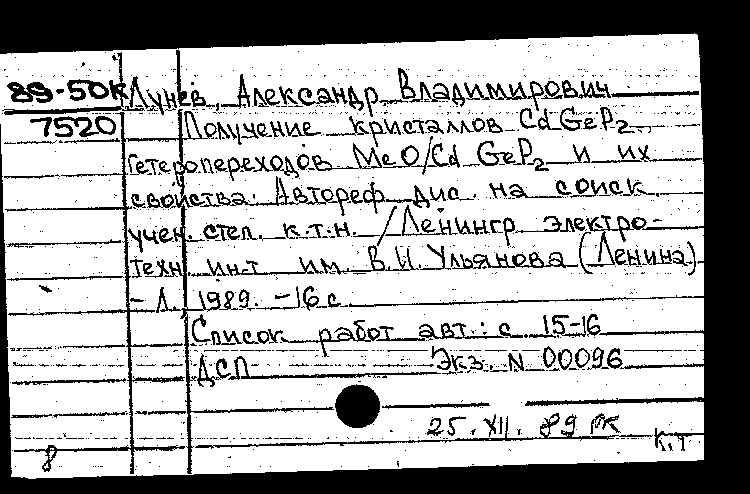 89-50К Лунев, Александр Владимирович
7520 Получение кристаллов CdGeP2,
гетеропереходов MeO/Cd GeP2 и их
свойства: Автореф. дис. на соиск.
учен. степ. к.т.н. /Ленингр. электро-
техн. ин-т им. В.И. Ульянова (Ленина)
- Л., 1989. - 16 с.
Список работ авт.: с 15-16
ДСП Экз. N 00096
25. XII. 89
к.т
8